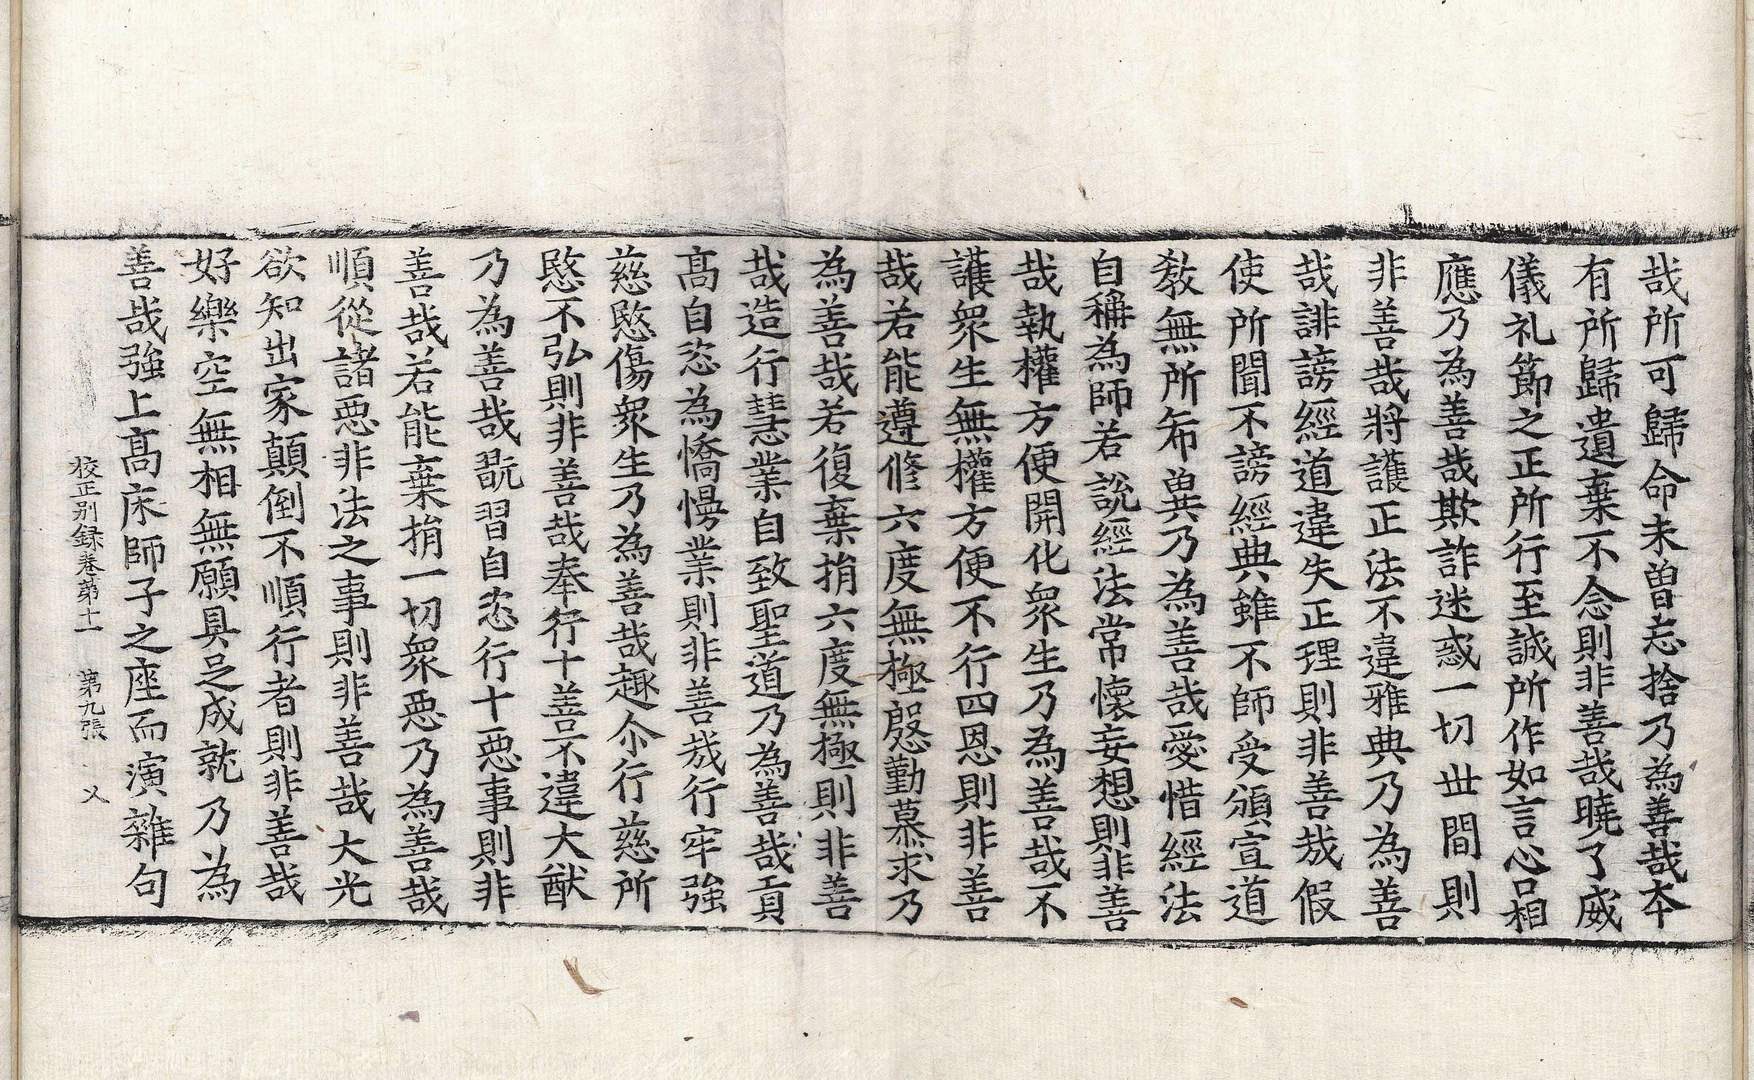 哉所可歸命未曽忘捨乃為善哉本
有所歸遺棄不念則非善哉曉了威
儀礼節之正所行至誠所作如言心口相
應乃為善哉欺詐迷惑一切世間則
非善哉將護正法不違雅典乃為善
哉誹謗經道違失正理則非善哉假
使所聞不謗經典雖不師受頒宣道
教無所布異乃為善哉愛惜經法
自稱為師若說經法常懷妄想則非善
哉執權方便開化衆生乃為善哉不
護衆生無權方便不行四恩則非善
哉若能遵修六度無極慇勤慕求乃
為善哉若復棄捐六度無極則非善
哉造行慧業自致聖道乃為善哉貢
髙自恣為憍慢業則非善哉行牢強
慈愍傷衆生乃為善哉趣尒行慈所
愍不弘則非善哉奉行十善不違大猷
乃為善哉翫習自恣行十惡事則非
善哉若能棄捐一切衆惡乃為善哉
順從諸惡非法之事則非善哉大光
欲知出家顛倒不順行者則非善哉
好樂空無相無願具足成就乃為
善哉強上髙床師子之座而演雜句
校正別録卷第十一 第九張 乂